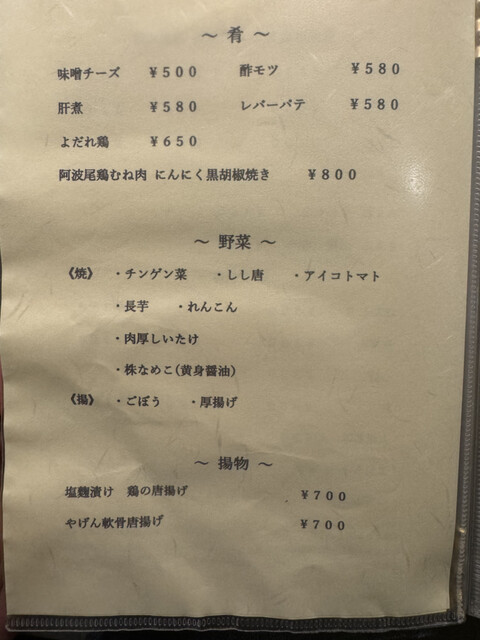 ～ 肴 ～
味噌チーズ ￥５００ 酢モツ ￥５８０
肝煮 ￥５８０ レバーパテ ￥５８０
よだれ鶏 ￥６５０
阿波尾鶏むね肉 にんにく黒胡椒焼き ￥８００
～ 野菜 ～
《焼》 ・チンゲン菜 ・しし唐 ・アイコトマト
・長芋 ・れんこん
・肉厚しいたけ
・株なめこ(黄身醤油)
《揚》 ・ごぼう ・厚揚げ
～ 揚物 ～
塩麹漬け 鶏の唐揚げ ￥７００
やげん軟骨唐揚げ ￥７００